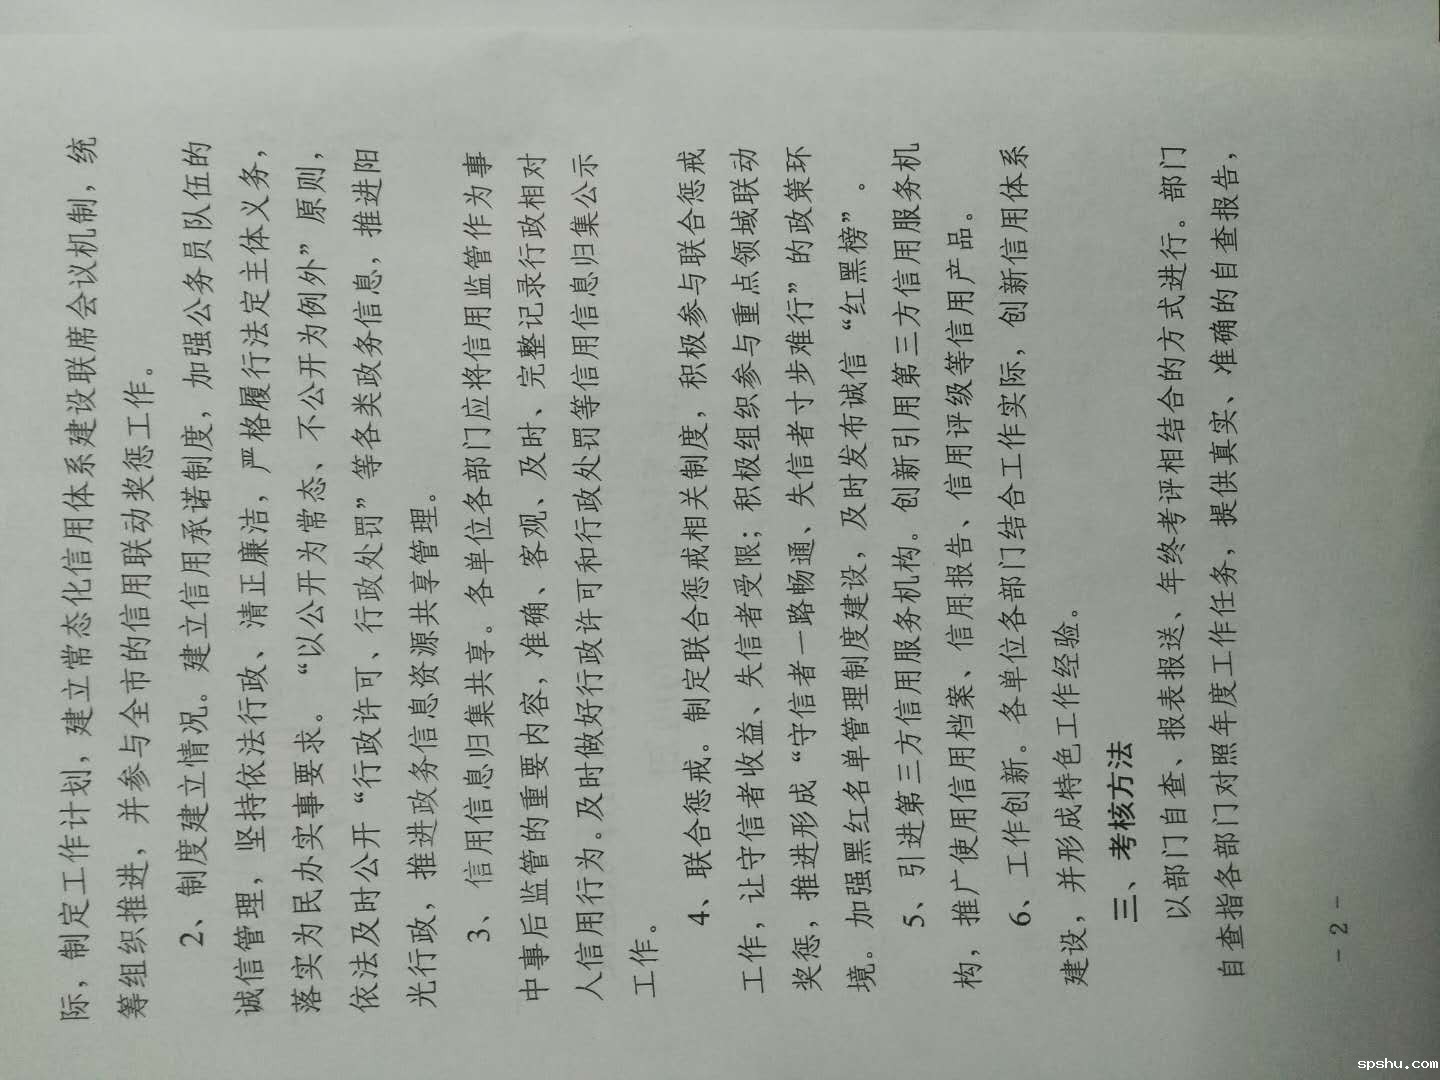 际，制定工作计划，建立常态化信用体系建设联席会议机制，统
筹组织推进，并参与全市的信用联动奖惩工作。
2、制度建立情况。建立信用承诺制度，加强公务员队伍的
诚信管理，坚持依法行政、清正廉洁，严格履行法定主体义务，
落实为民办实事要求。“以公开为常态、不公开为例外”原则，
依法及时公开“行政许可、行政处罚”等各类政务信息，推进阳
光行政，推进政务信息资源共享管理。
3、信用信息归集共享。各单位各部门应将信用监管作为事
中事后监管的重要内容，准确、客观、及时、完整记录行政相对
人信用行为。及时做好行政许可和行政处罚等信用信息归集公示
工作。
4、联合惩戒。制定联合惩戒相关制度，积极参与联合惩戒
工作，让守信者收益、失信者受限；积极组织参与重点领域联动
奖惩，推进形成“守信者一路畅通、失信者寸步难行”的政策环
境。加强黑红名单管理制度建设，及时发布诚信“红黑榜”。
5、引进第三方信用服务机构。创新引用第三方信用服务机
构，推广使用信用档案、信用报告、信用评级等信用产品。
6、工作创新。各单位各部门结合工作实际，创新信用体系
建设，并形成特色工作经验。
三、考核方法
以部门自查、报表报送、年终考评相结合的方式进行。部门
自查指各部门对照年度工作任务，提供真实、准确的自查报告，
- 2 -
spshu.com